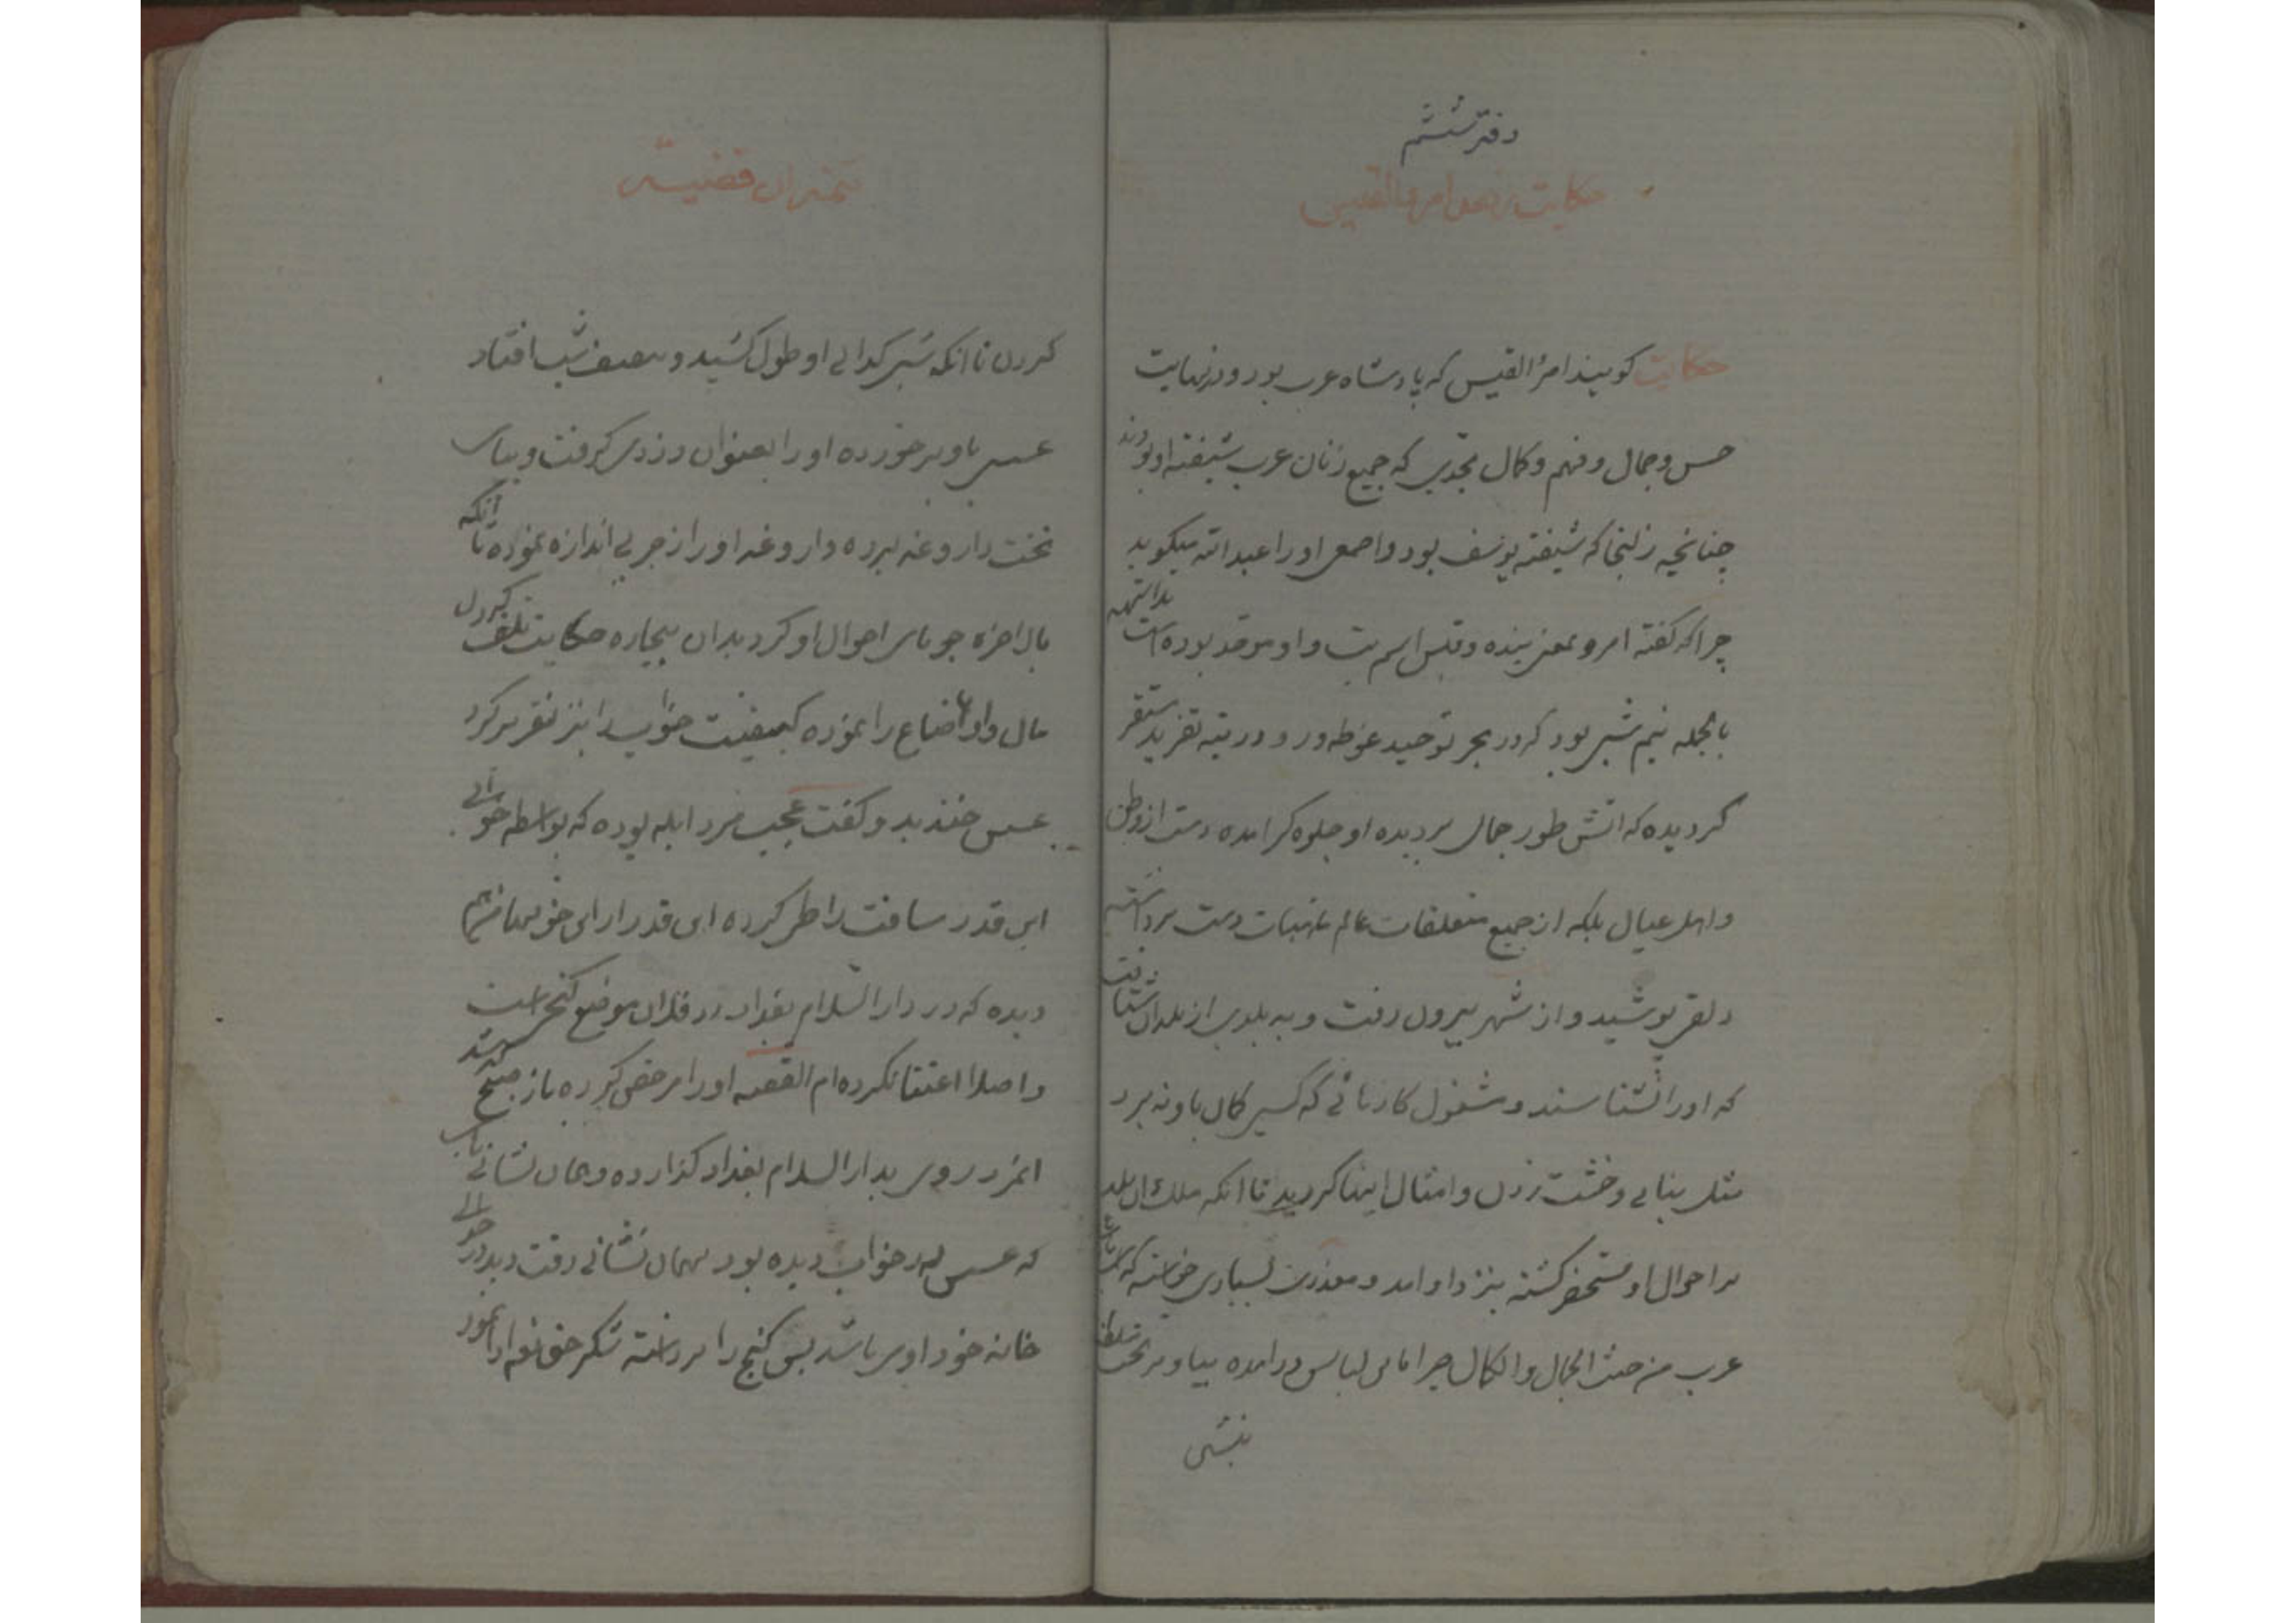 دفتر ششم
حکایت امرءالقیس
حکایت کویند امرٔالقیس که پادشاه عرب بود و در نهایت
حسن و جمال و فهم و کمال بحدی که جمیع زنان عرب شیفته او بودند
چنانچه زلیخا که شیفته یوسف بود و اصمعی او را عبدالله میکوید
چرا که کفته امرو بمعنی بنده و قیس اسم بت و او موحد بوده است
بالجمله نیم شبی بود که در بحر توحید غوطه‌ور و در تفرید مستقر
کردیده که اتش طور جمال بر دیده او جلوه کر امده دست از وطن
و اهل عیال بلکه از جمیع متعلقات عالم دست برداشته
دلقی پوشید و از شهر بیرون رفت و به بلدی از بلدان شتافت
که او را نشناسند و مشغول کارهائی که کسی کمان باو نه برد
مثل بنائی و خشت زدن و امثال اینها کردید تا انکه ملک ان بلد
بر احوال او مستحضر کشته بنزد او امد و معذرت بسیاری خواسته که
عرب من حیث الجمال و الکمال چرا باین لباس در امده بیا و بر تخت
بنشین
تتمه ان قضیه
کردن تا انکه شب کدائی او طول کشید و بنصف شب افتاد
عسس باو بر خورده او را بعنوان دزدی کرفت و بپای
تخت داروغه برده داروغه او را زجر بی اندازه نموده تا انکه
بالاخره جویای احوال او کردید ان بیچاره حکایت تلف کردن
مال و اوضاع را نموده کیفیت خواب را نیز تقریر کرد
عسس خندید و کفت عجب مرد ابله بوده که بواسطه خوابی
این قدر مسافت را طی کرده این قدر از این خوابها من هم
دیده که در دارالسلام بغداد در فلان موضع کنجی است
و اصلا اعتنا نکرده‌ام القصه او را مرخص کرده باز صبح شد
انمرد روی بدارالسلام بغداد کذارده و همان نشانی
که عسس در خواب دیده بود بهمان نشانی رفت دید در
خانه خود اوی باشد پس کنج را برداشته شکر حق نعم ادا نمود